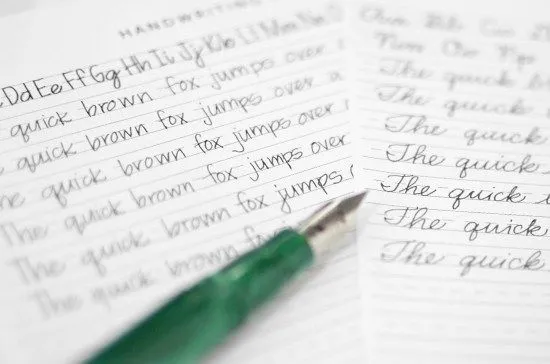 HANDWRITING
Dd Ee Ff Gg Hh Ii Jj Kk Ll Mm Nn
quick brown fox jumps over
quick brown fox jumps over
quick brown fox jumps over
The quick brown fox jumps over
The quick brown fox jumps
The quick brown fox
The quick
The quick
The quick
The quick
The quick
The quick
The quick